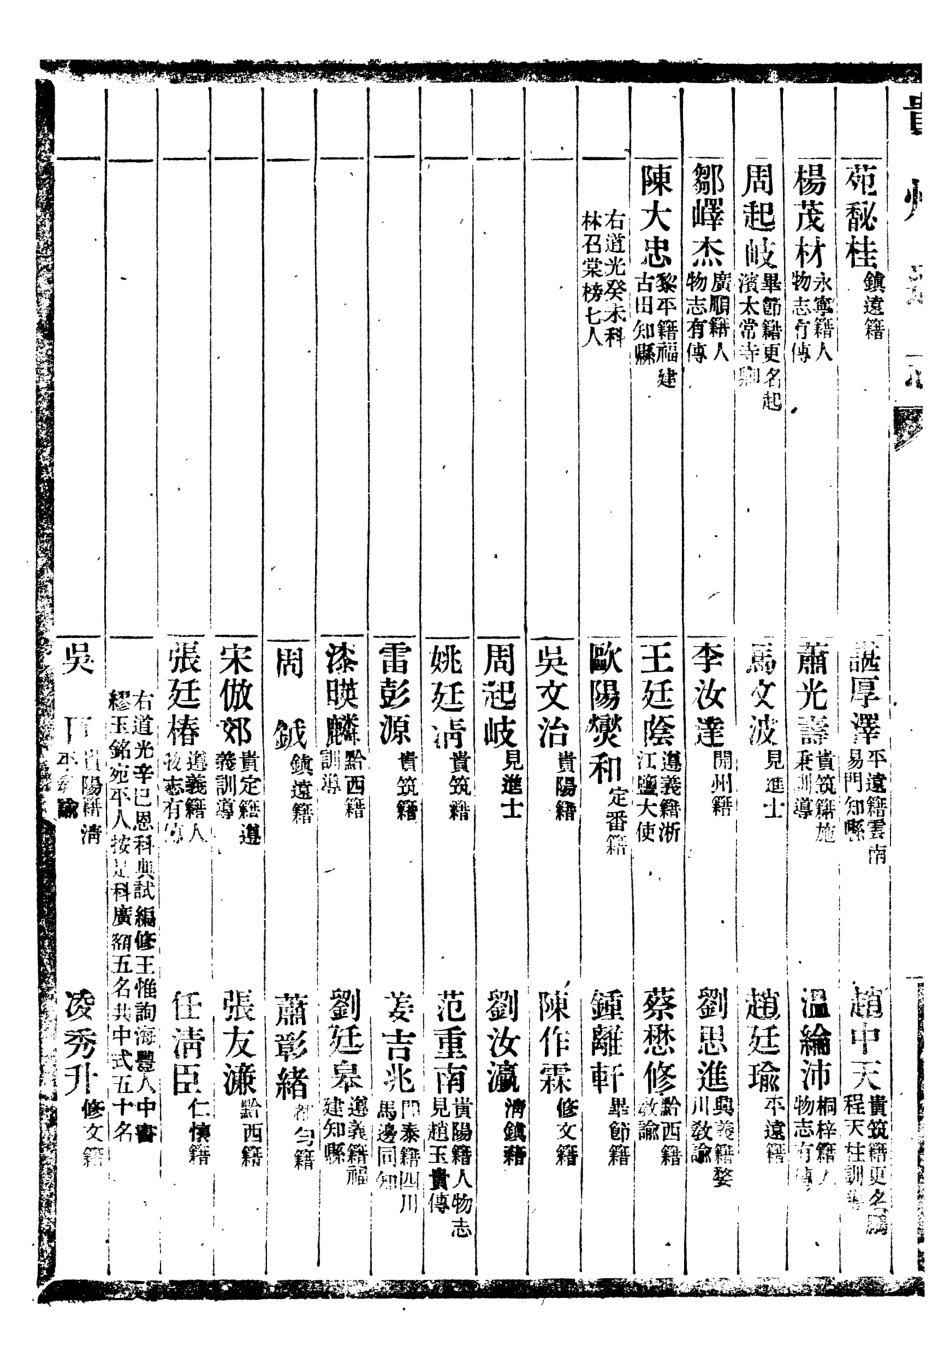 貴州通志
苑馝桂 鎮遠籍
諶厚澤 平遠籍雲南易門知縣
趙中天 貴筑籍更名鵬程天柱訓導
楊茂材 永寧籍人物志有傳
蕭光壽 貴筑籍施秉訓導
溫綸沛 桐梓籍人物志有傳
周起岐 畢節籍更名起濱太常寺卿
馬文波 見進士
趙廷瑜 平遠籍
鄒嶧杰 廣順籍人物志有傳
李汝達 開州籍
劉思進 興義籍婺川敎諭
陳大忠 黎平籍福建古田知縣
王廷蔭 遵義籍浙江鹽大使
蔡懋修 黔西籍敎諭
右道光癸未科林召棠榜七人
歐陽爕和 定番籍
鍾離軒 畢節籍
吳文治 貴陽籍
陳作霖 修文籍
周起岐 見進士
劉汝瀛 清鎮籍
姚廷清 貴筑籍
范重南 貴陽籍人物志見趙玉貴傳
雷彭源 貴筑籍
姜吉兆 開泰籍四川馬邊同知
漆暎麟 黔西籍訓導
劉廷皋 遵義籍福建知縣
周鉞 鎮遠籍
蕭彰緒 都勻籍
宋倣郊 貴定籍遵義訓導
張友濂 黔西籍
張廷椿 遵義籍人物志有傳
任清臣 仁懷籍
右道光辛巳恩科典試編修王惟詢海豐人中書
繆玉銘宛平人按是科廣額五名共中式五十名
吳 貴陽籍清平敎諭
凌秀升 修文籍